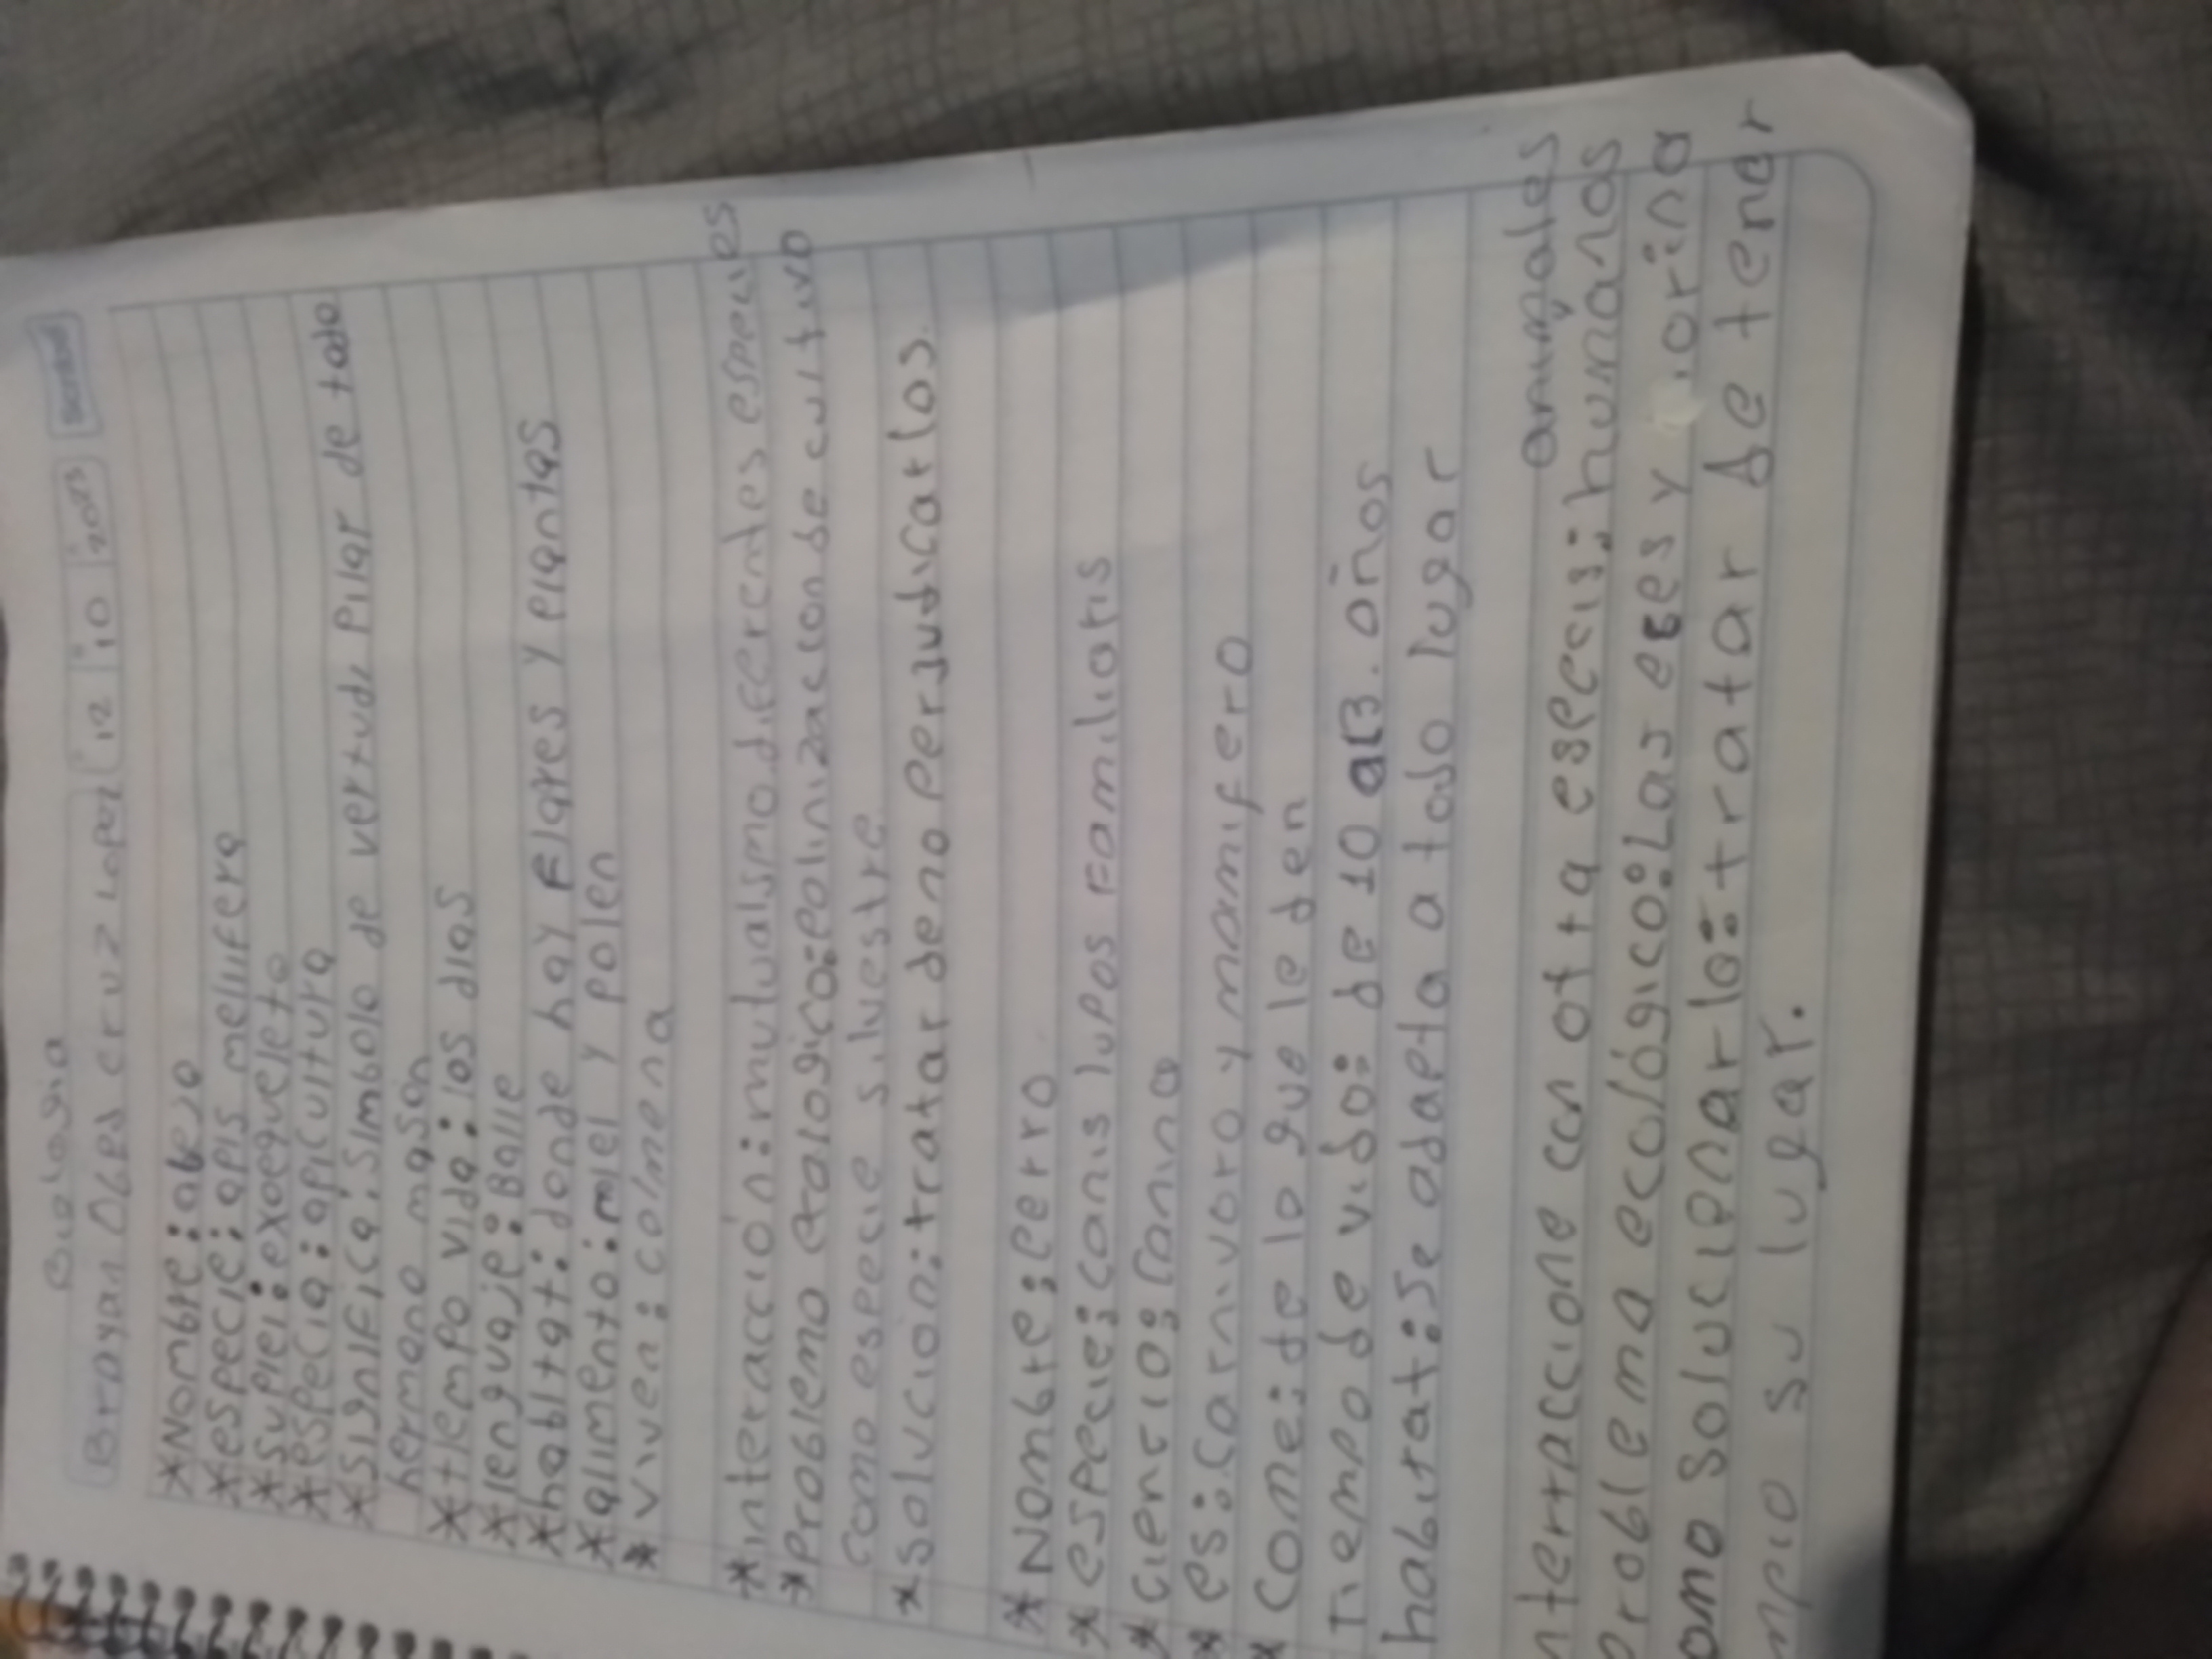 Biología
Brayan Oses cruz Lopez 12 10 2023 Scribe
*Nombre: abeja
*especie: apis mellifera
*supiel: exoequeleto
*especia: apicultura
*significa: simbolo de vertud, pilar de todo
hermano mason
*tiempo vida: los dias
*lenguaje: Balle
*habitat: donde hay Flores y plantas
*alimento: miel y polen
*viven: colmena
*interacción: mutualsmo.diferentes especies
*problemo etologico: polinizaccion de cultivo
como especie silvestre
*solución: tratar de no perjudicarlos.
*Nombre: perro
*especie: canis lupos Familiaris
*ciencio: canino
*es: carnivoro y mamifero
*come: de lo que le den
Tiempo de vido: de 10 a 13. años
habitat: se adapta a todo lugar
animales
nterraccione con otra especis: humanos
Problema ecológico: Las eces y orina
omo solucionarlo: tratar de tener
mpio su lugar.